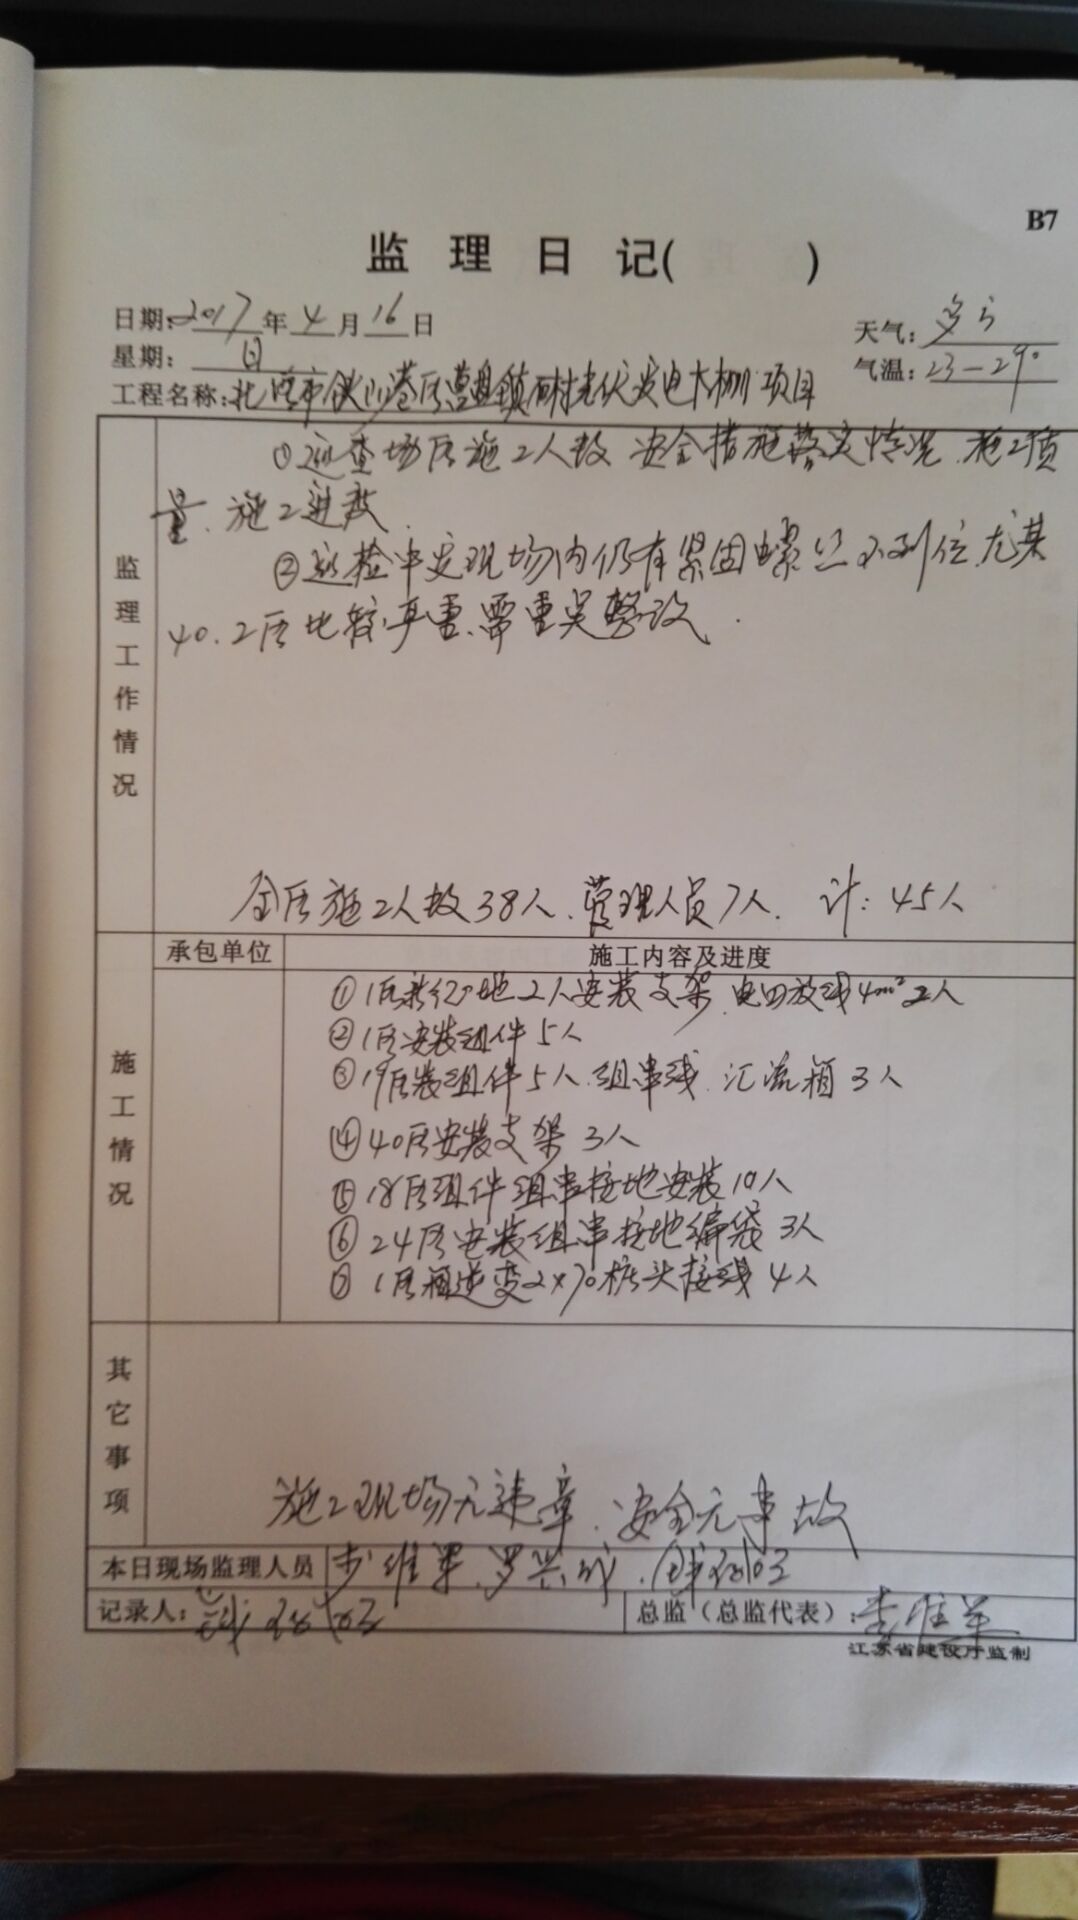 B7
监理日记( )
日期:2017年4月16日
天气:多云
星期:日
气温:23-29°
工程名称:北海市铁山港区营盘镇 村光伏发电大棚项目
监理工作情况
①巡查场区施工人数 安全措施落实情况.施工质
量.施工进度.
②巡检中发现场内仍有紧固螺丝不到位.尤其
40.2区地较严重.需 整改.
全区施工人数38人.管理人员7人. 计:45人
承包单位 施工内容及进度
施工情况
①1区 地2人安装支架. 放线4m² 2人
②1区安装组件5人
③19区装组件5人.组串线.汇流箱3人
④40区安装支架3人
⑤18区组件组串接地安装10人
⑥24区安装组串接地 3人
⑦1区箱逆变2×70 头接线4人
其它事项
施工现场无违章.安全无事故
本日现场监理人员 罗兴成.
记录人:
总监(总监代表):
江苏省建设厅监制